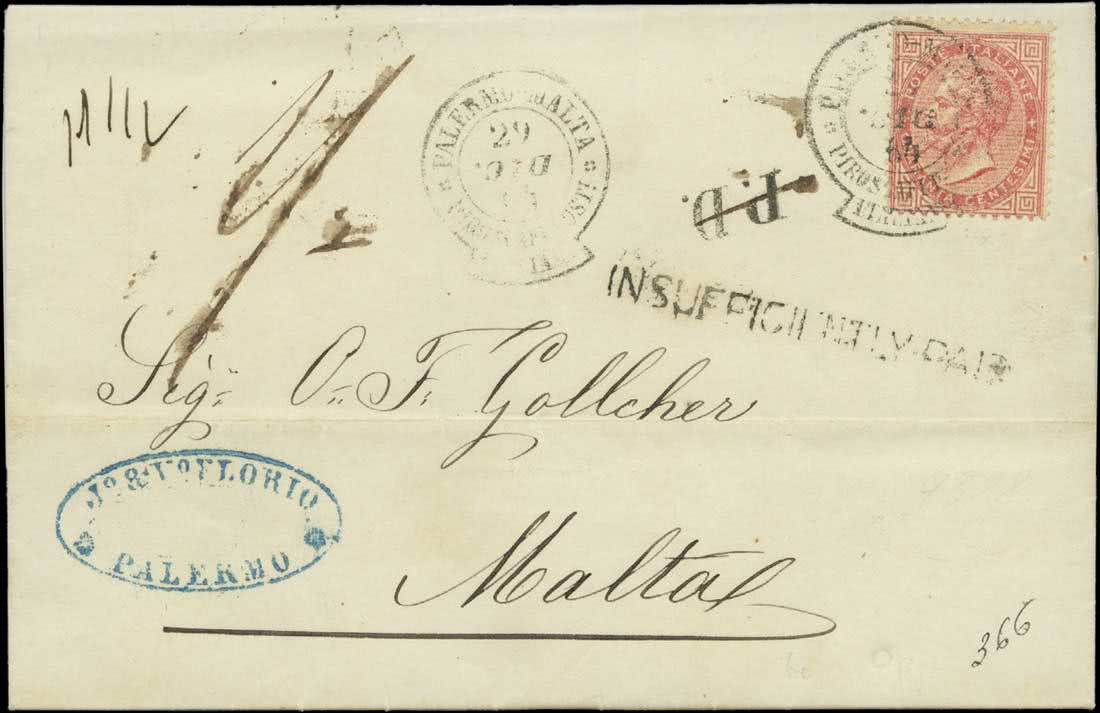 PALERMO-MALTA
29
DIC
POSTE ITALIANE
CENTESIMI
DIC
64
P.D.
INSUFFICIENTLY PAID
Sigr O. F. Gollcher
Jo. & Vo. FLORIO
PALERMO
Malta
366